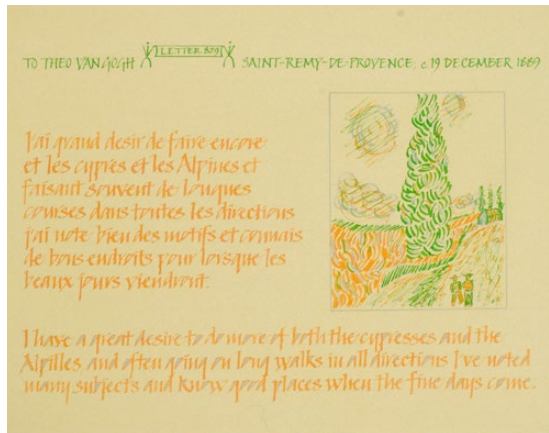 TO THEO VAN GOGH LETTER 809 SAINT-REMY-DE-PROVENCE, c. 19 DECEMBER 1889
J'ai grand desir de faire encore
et les cypres et les Alpines et
faisant souvent de longues
courses dans toutes les directions
j'ai note bien des motifs et connais
de bons endroits pour lorsque les
beaux jours viendront.
I have a great desire to do more of both the cypresses and the
Alpilles, and often going on long walks in all directions I've noted
many subjects and know good places when the fine days come.